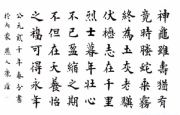 神龜雖壽猶有
竟時騰蛇乘霧
終為土灰老驥
伏櫪志在千里
烈士暮年壯心
不已盈縮之期
不但在天養怡
之福可得永年
公元二千年春分書